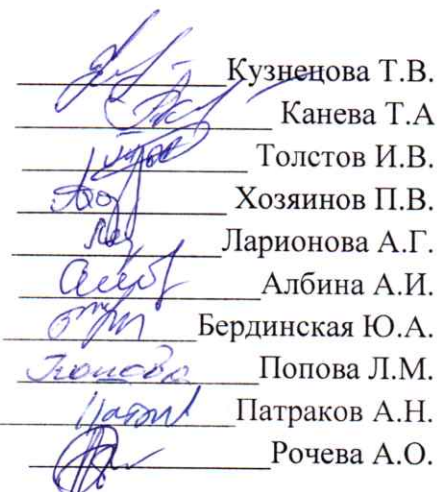 Кузнецова Т.В.
Канева Т.А
Толстов И.В.
Хозяинов П.В.
Ларионова А.Г.
Албина А.И.
Бердинская Ю.А.
Попова Л.М.
Патраков А.Н.
Рочева А.О.